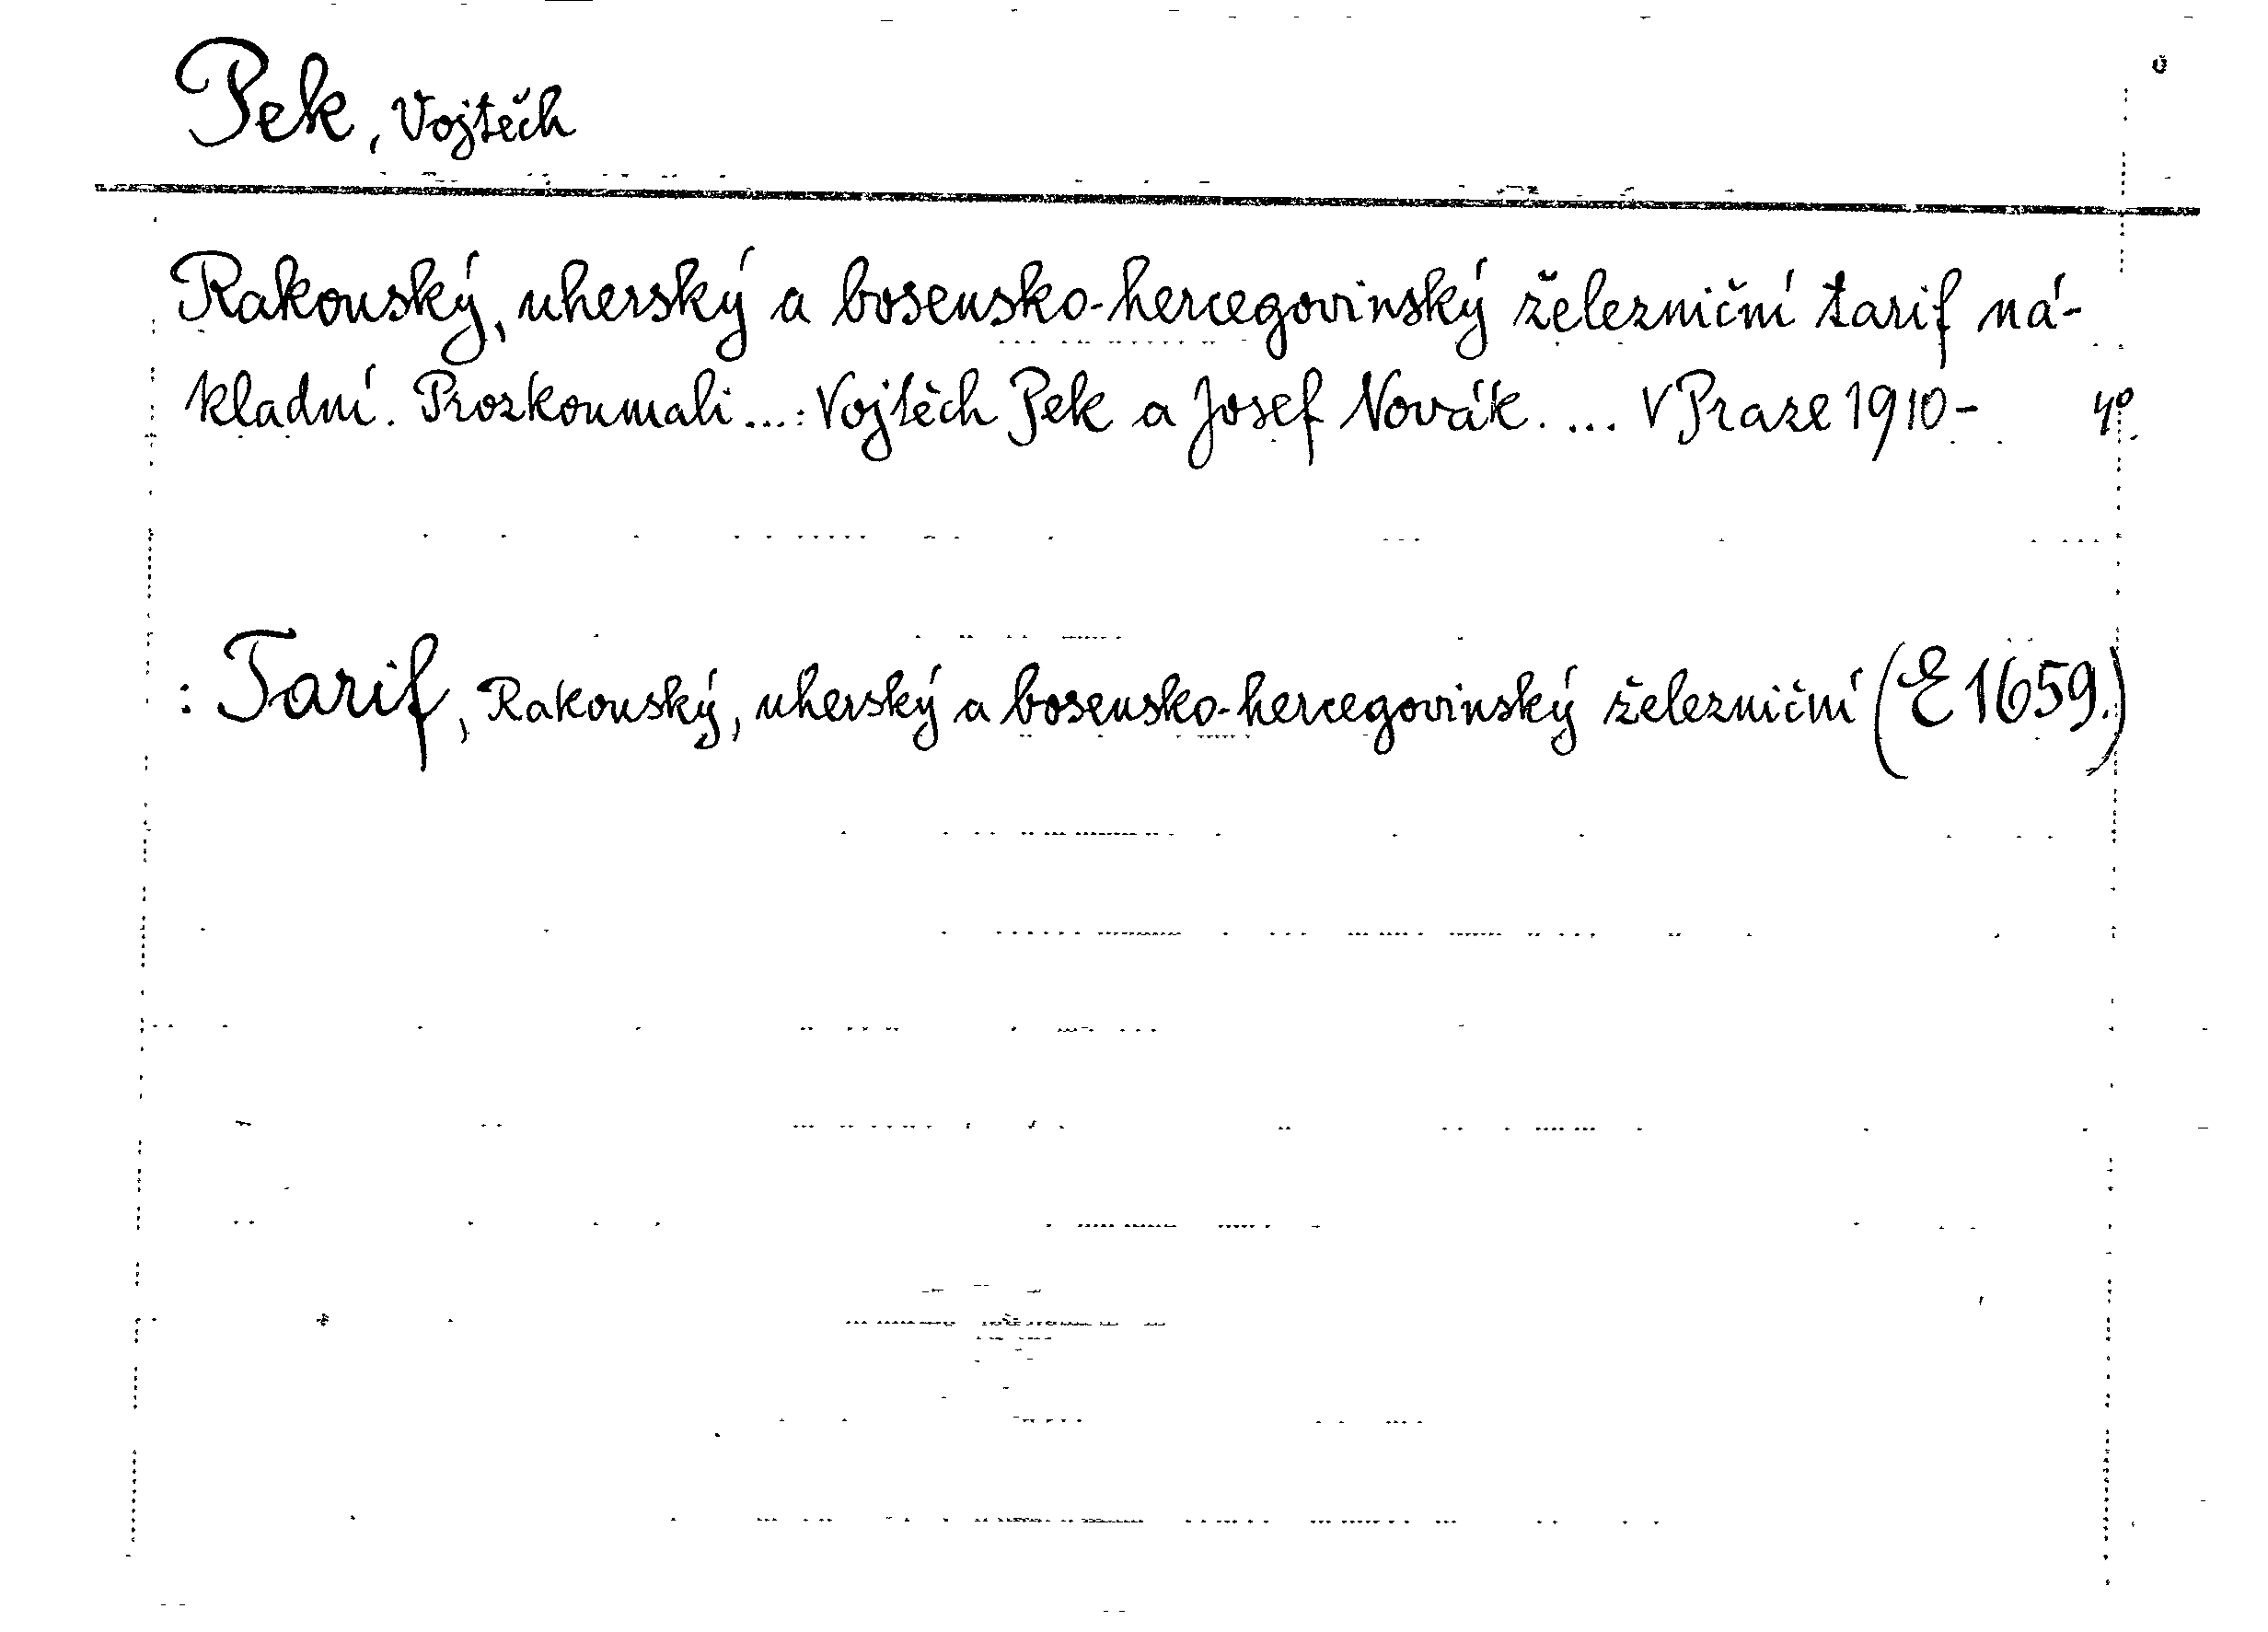 Pek, Vojtěch
Rakouský, uherský a bosensko-hercegovinský železniční tarif ná-
kladní. Prozkoumali...: Vojtěch Pek a Josef Novák. ... V Praze 1910- 4º
: Tarif, Rakouský, uherský a bosensko-hercegovinský železniční (E 1659.)